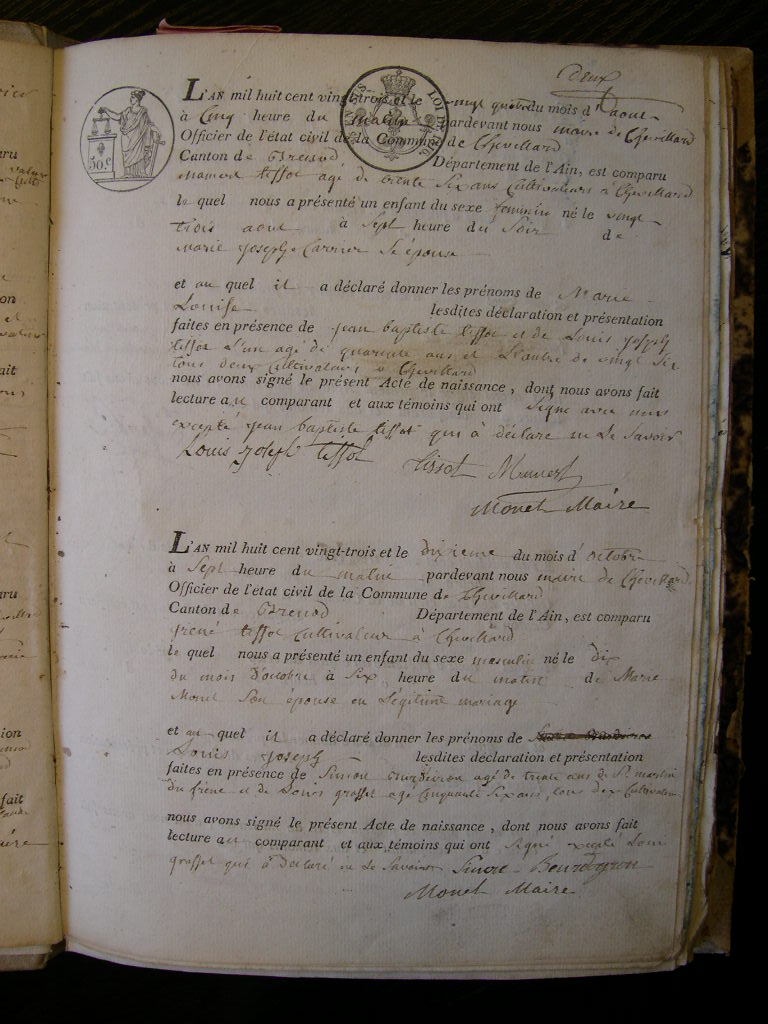 deux
50.c
LOI DE
L'AN mil huit cent vingt-trois et le vingt quatre du mois d'aout
à Cinq heure du matin pardevant nous maire de Chevillard
Officier de l'état civil de la Commune de Chevillard
Canton de Brenod Département de l'Ain, est comparu
mamert tissot agé de trente Six ans Cultivateur à Chevillard
le quel nous a présenté un enfant du sexe feminin né le vingt
trois aout à Sept heure du Soir de
marie Josephe Carrier Se épouse
et au quel il a déclaré donner les prénoms de Marie
Louise lesdites déclaration et présentation
faites en présence de jean baptiste tissot et de Louis joseph
tissot l'un agé de quarante ans et L'autre de vingt Six
tous deux Cultivateurs à Chevillard
nous avons signé le présent Acte de naissance, dont nous avons fait
lecture au comparant et aux témoins qui ont Signé avec nous
excepté jean baptiste tissot qui à déclaré ne Le Savoir
Louis joseph tissot tissot Mamert
Monet Maire
L'AN mil huit cent vingt-trois et le dixieme du mois d'octobre
à Sept heure du matin pardevant nous maire de Chevillard
Officier de l'état civil de la Commune de Chevillard
Canton de Brenod Département de l'Ain, est comparu
tissot Cultivateur à Chevillard
le quel nous a présenté un enfant du sexe masculin né le dix
du mois d'octobre à Six heure du matin de Marie
Monet Son épouse en Légitime mariage
et au quel il a déclaré donner les prénoms de
Louis joseph lesdites déclaration et présentation
faites en présence de Simon agé de trente ans de St. martin
du frêne et de Louis graffet agé Cinquante Six ans, tous deux Cultivateurs
nous avons signé le présent Acte de naissance, dont nous avons fait
lecture au comparant et aux témoins qui ont Signé excepté Louis
graffet qui à déclaré ne Le Savoir
Monet Maire